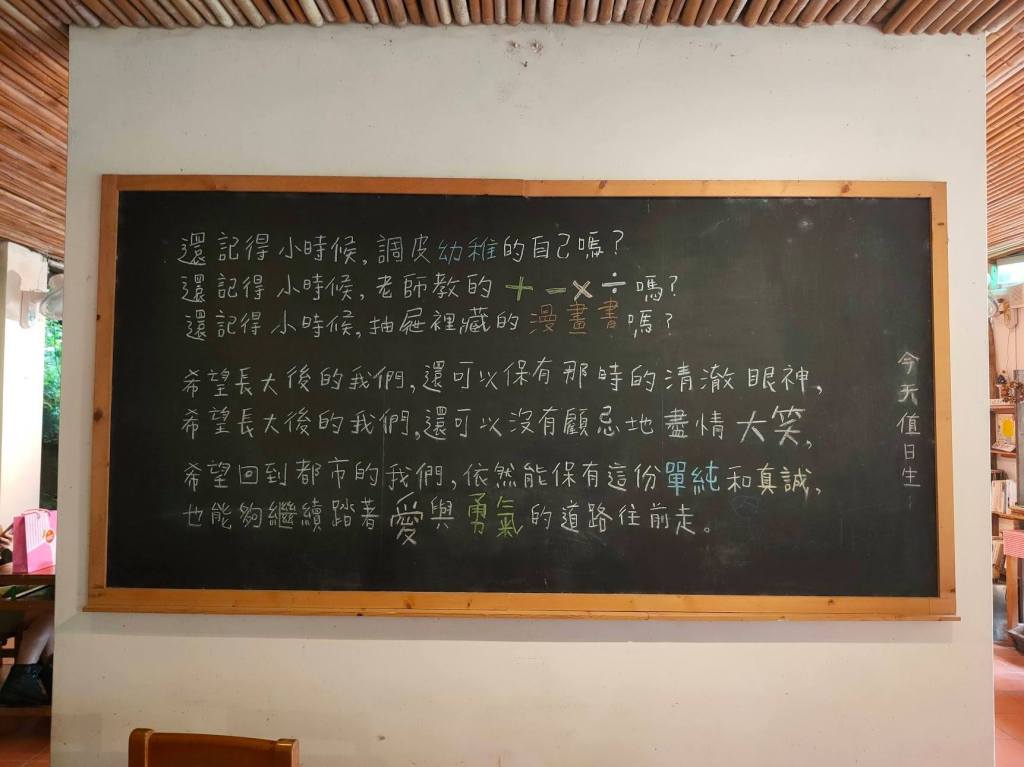 還記得小時候,調皮幼稚的自己嗎?
還記得小時候,老師教的+-×÷嗎?
還記得小時候,抽屜裡藏的漫畫書嗎?
希望長大後的我們,還可以保有那時的清澈眼神,
希望長大後的我們,還可以沒有顧忌地盡情大笑,
希望回到都市的我們,依然能保有這份單純和真誠,
也能夠繼續踏著愛與勇氣的道路往前走。
今天值日生